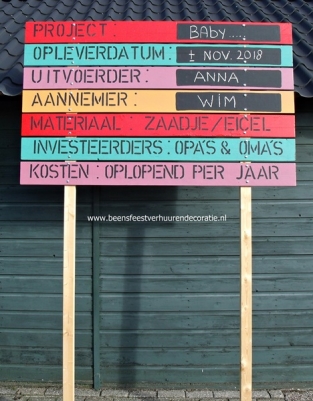 PROJECT: BABY.....
OPLEVERDATUM: ± NOV. 2018
UITVOERDER: ANNA
AANNEMER: WIM
MATERIAAL: ZAADJE/EICEL
INVESTEERDERS: OPA'S & OMA'S
KOSTEN: OPLOPEND PER JAAR
www.beensfeestverhuurendecoratie.nl